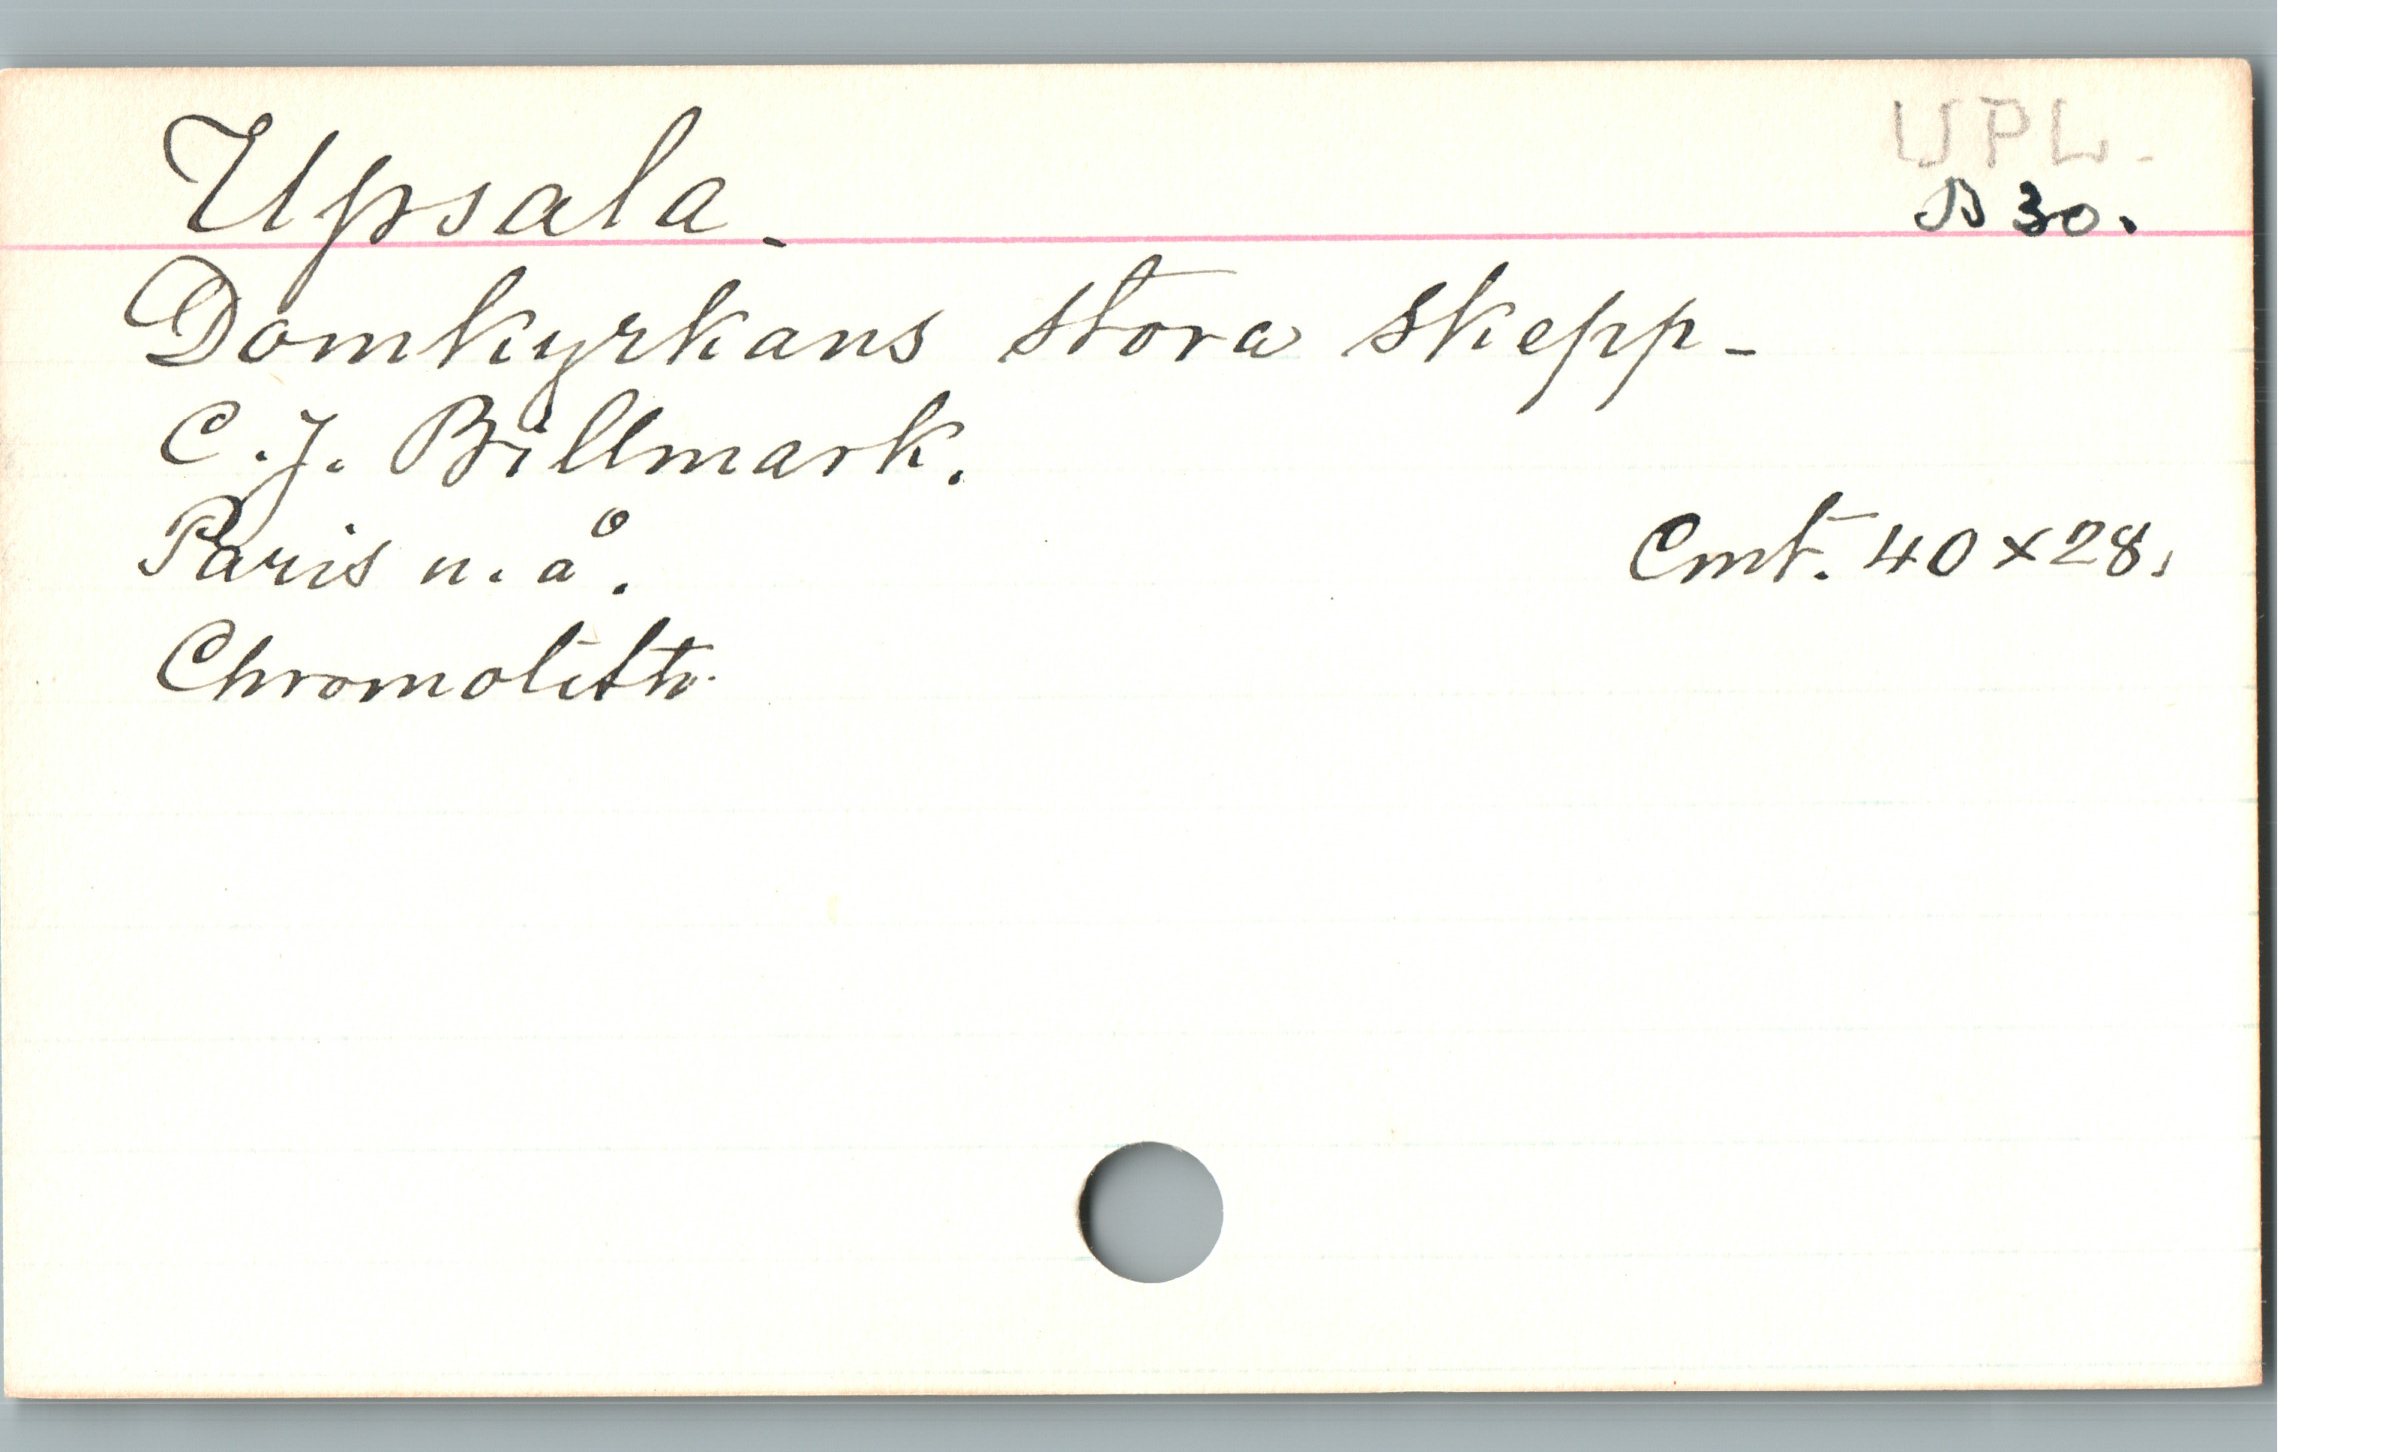 UPL.
Upsala.
B 30.
Domkyrkans stora skepp.
C. J. Billmark.
Paris u. å.
Cmt. 40 x 28.
Chromolith.